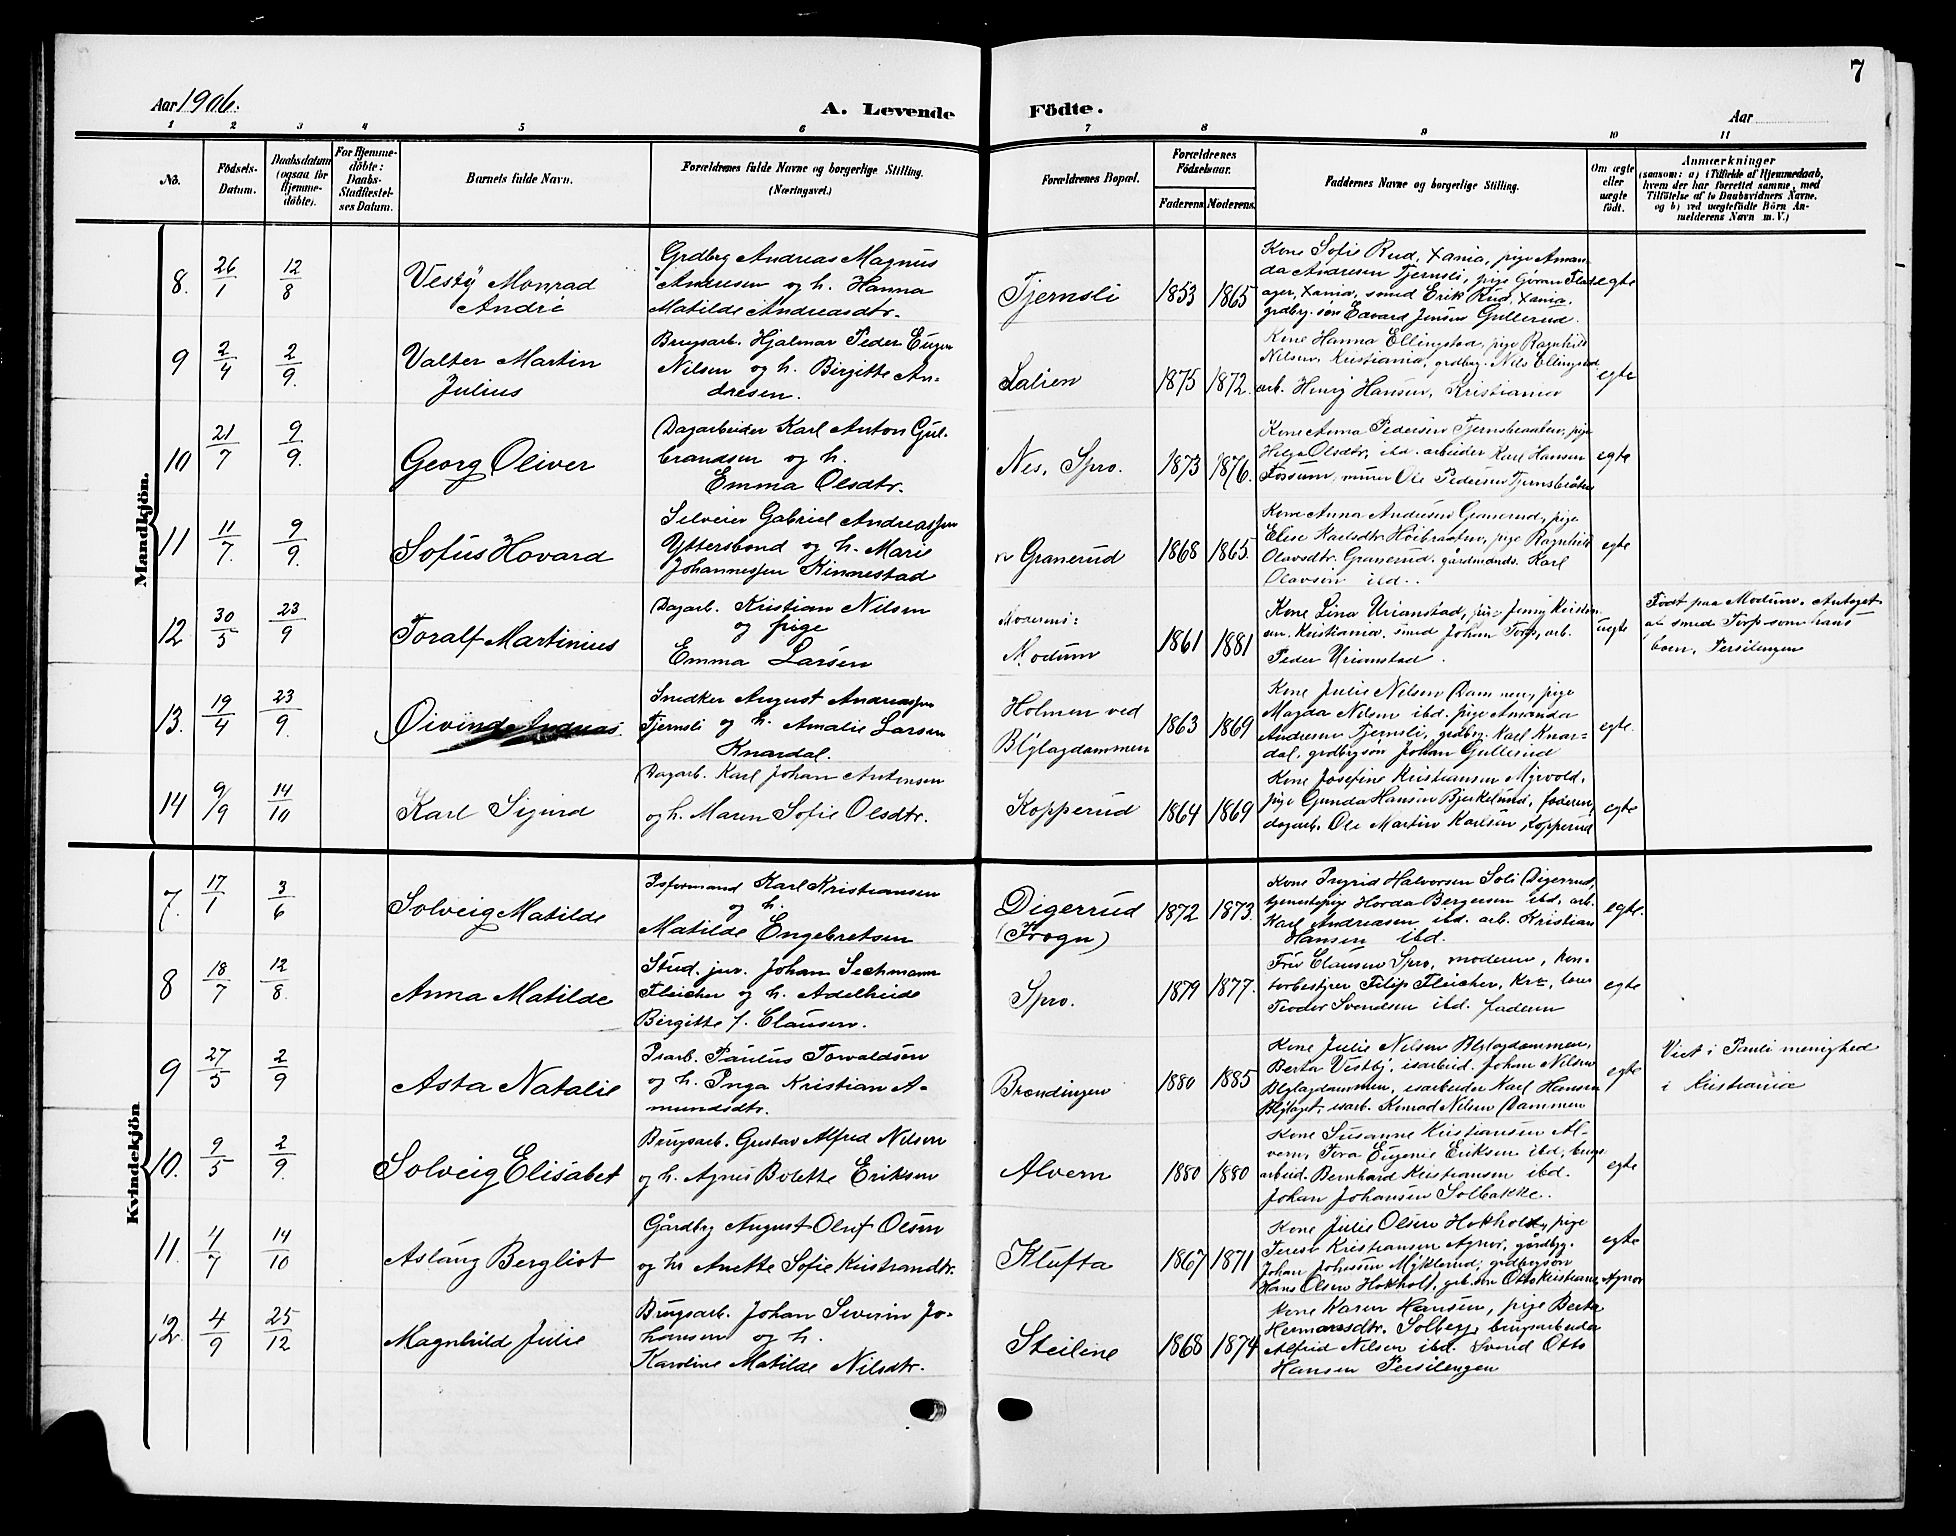 7
Aar 1906.
A. Levende Födte.
Aar
1 2 3 4 5 6 7 8 9 10 11
No.
Födsels-Datum.
Daabsdatum (ogsaa for Hjemme-döbte).
For Hjemme-döbte: Daabs-Stadfæstel-ses Datum.
Barnets fulde Navn.
Forældrenes fulde Navne og borgerlige Stilling.
(Næringsvei.)
Forældrenes Bopæl.
Forældrenes Födselsaar.
Faderens Moderens.
Faddernes Navne og borgerlige Stilling.
Om ægte eller uægte födt.
Anmærkninger
(saasom: a) i Tilfælde af Hjemmedaab,
hvem der har forrettet samme, med
Tilföielse af to Daabsvidners Navne.
og b) ved uægtefödte Börn An-
melderens Navn m. V.)
Mandkjön.
8. 26/1 12/8
Vestÿ Monrad
André
Grdbrg Andreas Magnus
Andresen og h. Hanna
Matilde Andreasdtr.
Tjernsli
1853 1865
Kone Sofie Rud, Xania, pige Aman-
da Andresen Tjernsli, pige Gøran
ager, Xania, smed Erik Rud, Xania.
grdbrg. søn Edvard Jensen Gullerud.
egte
9 2/4 2/9.
Valter Martin
Julius
Brugsarb. Hjalmar Peder Eugen
Nilsen og h. Birgitte An-
dresen.
Lalien
1875 1872.
Kone Hanna Ellingstad, pige Ragnhild
Nilsen, Kristiania, grdbrg. Nils Ellingstad
arb. Henrÿ Hansen, Kristiania
egte
10 21/7 9/9.
Georg Oliver
Dagarbeider Karl Anton Gul-
brandsen og h.
Emma Olsdtr.
Nes, Spro.
1873 1876.
Kone Anna Pedersen Tjernsbraaten, pige
Helga Olsdtr. ibd. arbeider Karl Hansen
Fossum, murer Ole Pedersen Tjernsbråten
egte
11 11/7. 9/9.
Sofus Hovard
Selveier Gabriel Andreassen
Yttersbond og h. Marie
Johannessen Kinnestad
n Granerud
1868 1865.
Kone Anna Andresen Granerud, pige
Elise Karlsdtr. Høibraaten, pige Ragnhild
Olavsdtr. Granerud. gårdmands. Karl
Olavsen ibd..
egte
12. 30/5 23/9
Toralf Martinius
Dagarb. Kristian Nilsen
og pige
Emma Larsen
Moderens:
Modum
1861 1881
Kone Lina Urianstad, pige Jenny Kristian-
sen, Kristiania, smed Johan Torp, arb.
Peder Urianstad.
uegte
Født paa Modum. Antaget
at smed Torp som hans
barn, Persilengen
13. 19/4 23/9.
Øivind Andreas.
Snedker August Andreassen
Tjernsli og h. Amalie Larsen
Knardal.
Holmen ved
Blÿlagdammen
1863 1869
Kone Julie Nilsen Dammen, pige
Magda Nilsen ibd. pige Amanda
Andresen Tjernsli, grdbrg. Karl Knar-
dal, grdbrgsøn Johan Gullerud
egte.
14 9/9 14/10
Karl Sigurd
Dagarb. Karl Johan Antonsen
og h. Maren Sofie Olsdtr.
Kopperud
1864 1869
Kone Josefine Kristiansen Mÿrvold,
pige Gunda Hansen Bjerkelund, faderen,
dagarb. Ole Martin Karlsen, Kopperud
egte
Kvindekjön
7. 17/1 3/6
Solveig Matilde
Isformand Karl Kristiansen
og h.
Matilde Engebretsen
Digerud
(Frogn)
1872 1873.
Kone Ingrid Halvorsen Soli Digerud,
tjenestepige Horda Bergersen ibd. arb.
Karl Andreasen ibd. arb. Kristian
Hansen ibd.
egte.
8 18/7 12/8.
Anna Matilde
Stud. jur. Johan Sechmann
Fleicher og h. Adelheide
Birgitte f. Clausen.
Spro.
1879 1877.
Fru Clausen Spro, moderen, kon-
torbestyrer Filip Fleicher, Kra,
Teodor Svendsen ibd. faderen
egte
9 27/5 2/9
Asta Natalie
Isarb. Paulus Torvaldsen
og h. Inga Kristian A-
mundsdtr.
Brændingen
1880 1885
Kone Julie Nilsen Blylagdammen,
Berta Vestbÿ, isarbeid. Johan Nilsen
Blylagdammen, isarbeider Karl Hansen
Blÿlaget, isarb. Konrad Nilsen Dammen
egte
Viet i Pauli menighed
i Kristiania
10. 9/5 2/9.
Solveig Elisabet
Brugsarb. Gustav Alfred Nilsen
og h. Agnes Bolette Eriksen
Alvern
1880 1880
Kone Susanne Kristiansen Al-
vern, Tora Eugenie Eriksen ibd, brugs
arbeid. Bernhard Kristiansen ibd.
Johan Johansen Solbakke.
egte
11. 4/7 14/10
Aslaug Bergliot
Gårdbrg August Oluf Olsen
og h. Anette Sofie Kristiandtr.
Klufta
1867 1871
Kone Julie Olsen Hokholt, pige
Terese Kristiansen Agnor, gårdbrg.
Johan Johnsen Mÿklerud, grdbrgsøn
Hans Olsen Hokholt, grb. søn Otto Kristiansen Agnor
egte
12. 4/9 25/12
Magnhild Julie
Brugsarb. Johan Severin Jo-
hansen og h.
Karoline Matilde Nilsdtr.
Steilene
1868 1874
Kone Karen Hansen, pige Berta
Hermansdtr. Solberg, brugsarbeider
Alfred Nilsen ibd. Svend Otto
Hansen Persilengen